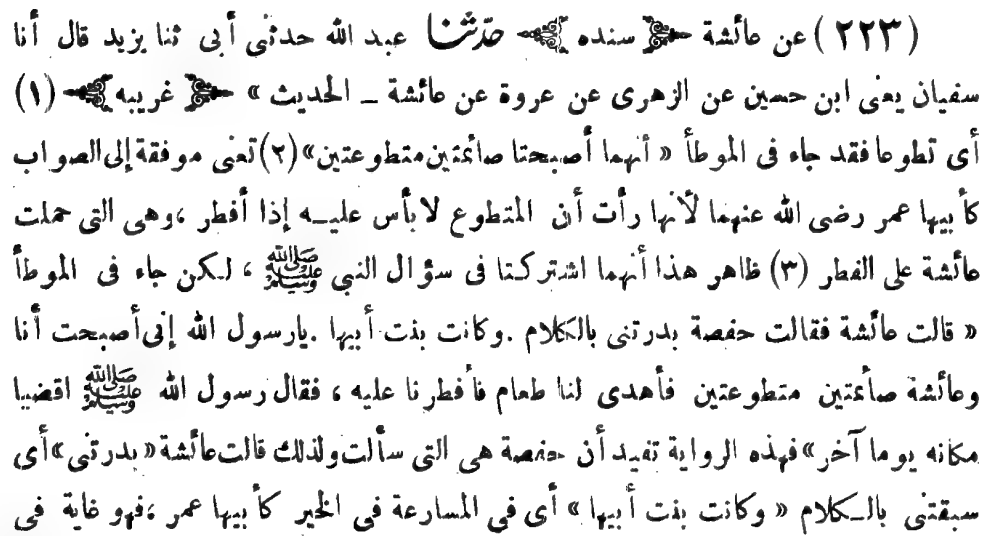 (٢٢٣) عن عائشة ﴿ سنده ﴾ حدثنا عبد الله حدثني أبي ثنا يزيد قال أنا
سفيان يعنى ابن حسين عن الزهرى عن عروة عن عائشة ــ الحديث » ﴿ غريبه ﴾ (١)
أى تطوعا فقد جاء فى الموطأ « أنهما أصبحتا صائمتين متطوعتين» (٢) تعنى موفقة إلى الصواب
كأبيها عمر رضى الله عنهما لأنها رأت أن المتطوع لا بأس عليــه إذا أفطر ، وهى التى حملت
عائشة على الفطر (٣) ظاهر هذا أنهما اشتركتا فى سؤال النبى ﷺ ، لـكن جاء فى الموطأ
« قالت عائشة فقالت حفصة بدرتنى بالكلام . وكانت بنت أبيها . يارسول الله إنى أصبحت أنا
وعائشة صائمتين متطوعتين فأهدى لنا طعام فأفطرنا عليه ، فقال رسول الله ﷺ اقضيا
مكانه يوما آخر» فهذه الرواية تفيد أن حفصة هى التى سألت ولذلك قالت عائشة « بدرتنى » أى
سبقتنى بالــكلام « وكانت بنت أبيها » أى فى المسارعة فى الخير كأبيها عمر ، فهو غاية فى